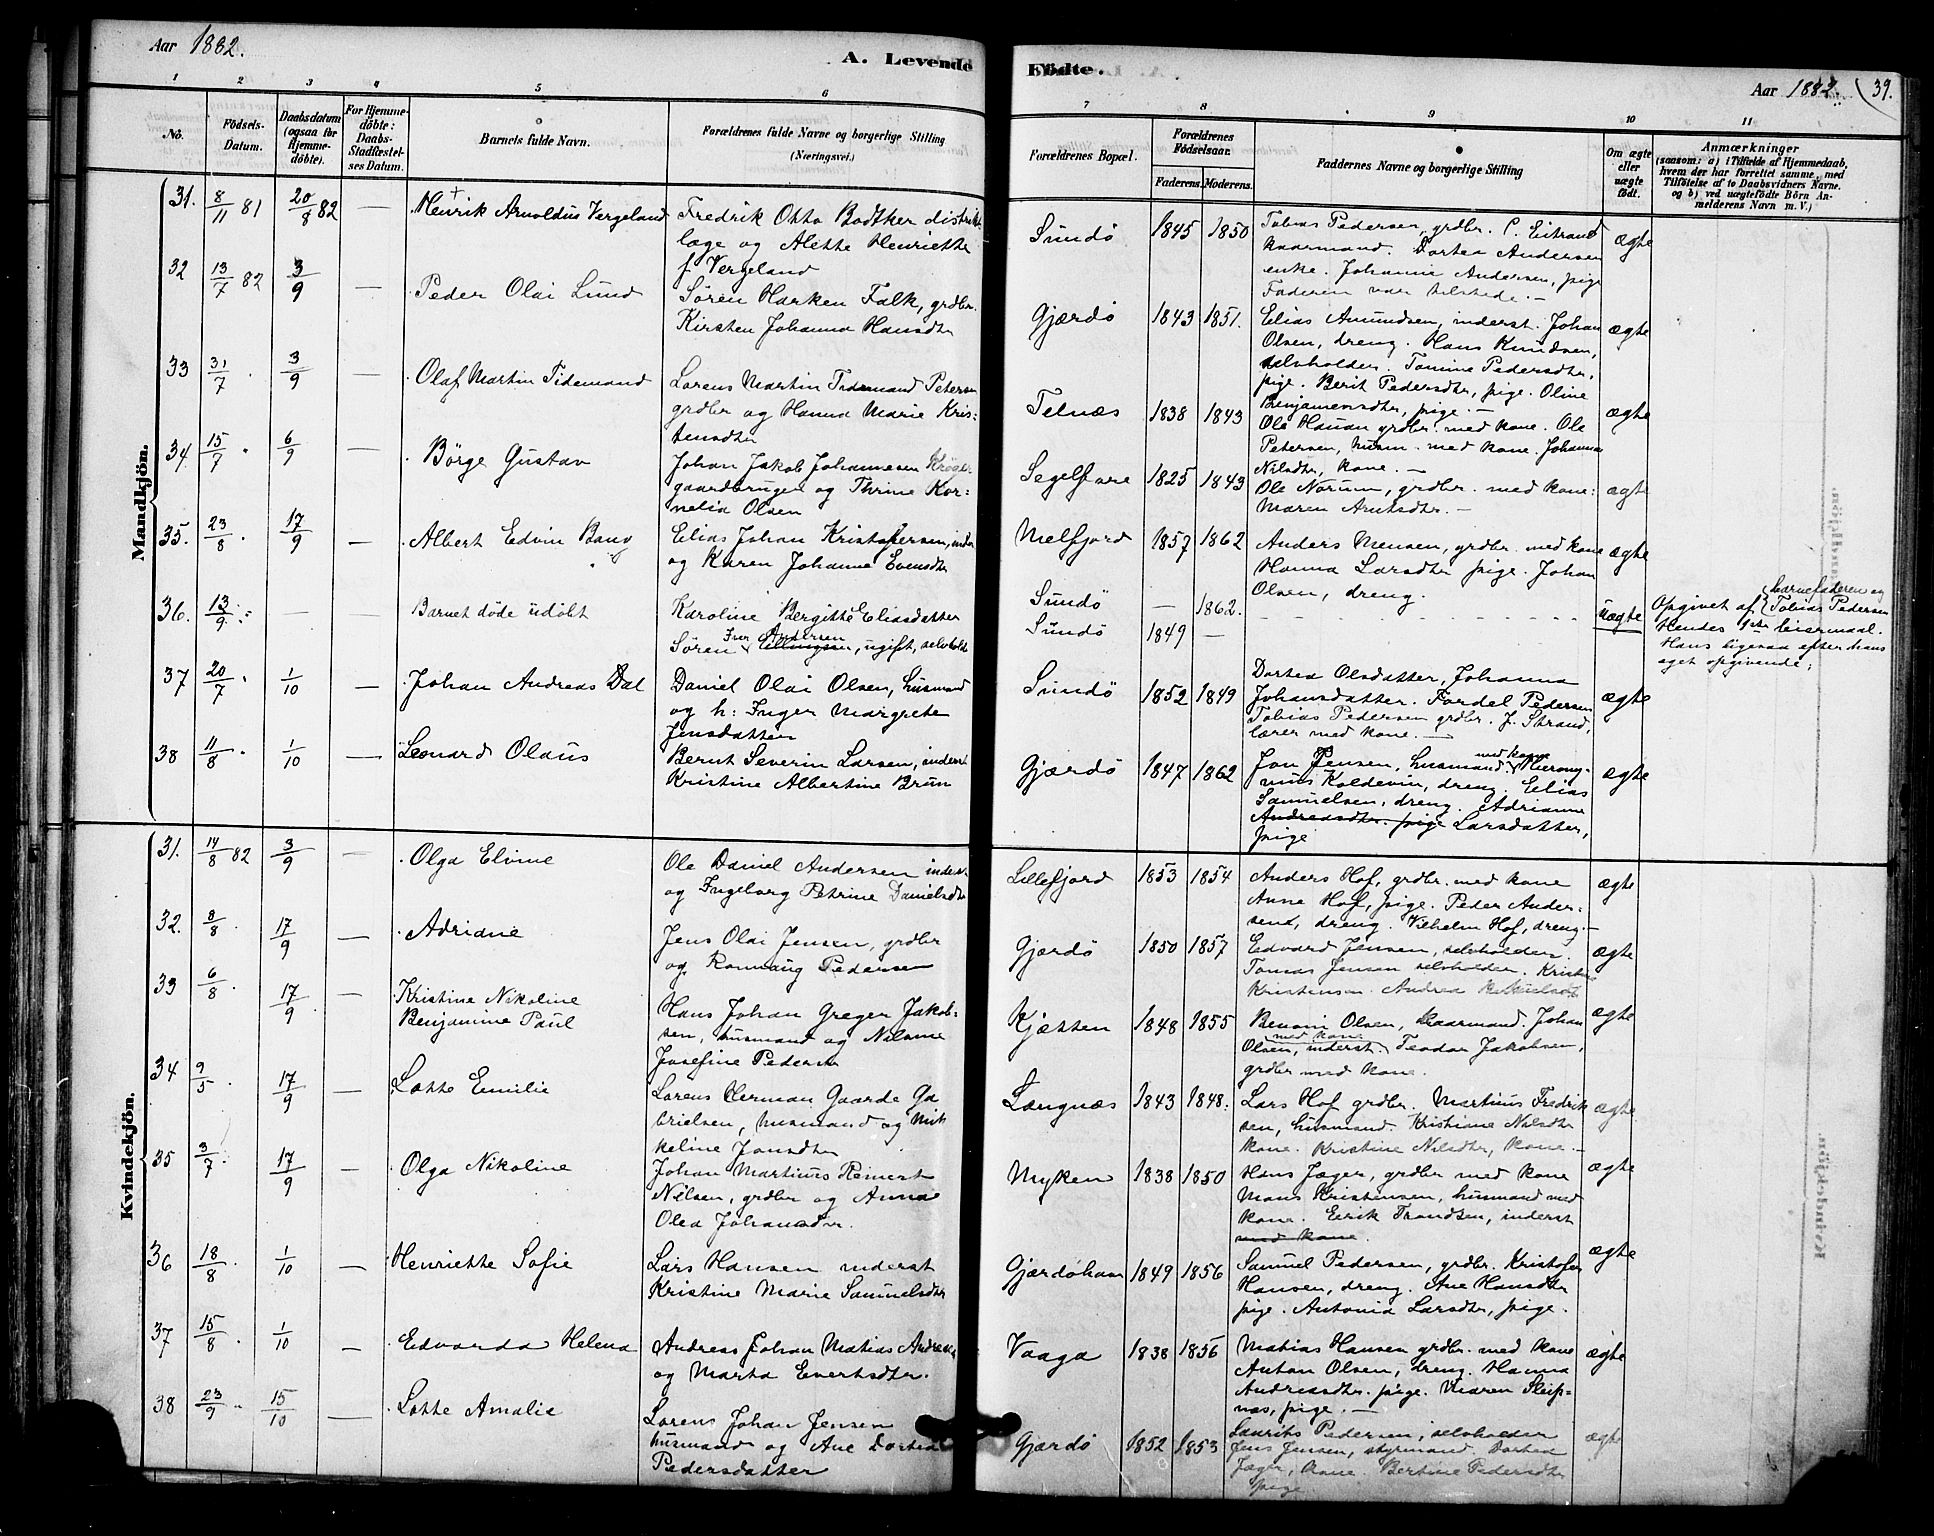 Aar 1882.
A. Levende
1 2 3 4 5 6
No.
Födsels-
Datum.
Daabsdatum
(ogsaa for
Hjemme-
döbte).
For Hjemme-
döbte:
Daabs-
Stadfæstel-
ses Datum.
Barnets fulde Navn.
Forældrenes fulde Navne og borgerlige Stilling
(Næringsvei.)
Mandkjön.
31. 8/11 81 20/8 82 — Henrik Arnoldus Vergeland
Fredrik Otto Bødtker distrikts
læge og Alette Henriette
f Vergeland
32 13/7 82 3/9 — Peder Olai Lund
Søren Harken Falk, grdbr.
Kirsten Johanna Hansdtr
33 31/7 3/9 — Olaf Martin Tidemand
Lorens Martin Tidemand Petersen
grdbr og Hanna Marie Kris-
tensdtr
34. 15/7 6/9 — Börge Gustav
Johan Jakob Johannesen Krøger
gaardbruger og Thrine Kor-
nelia Olsen
35. 23/8 17/9 — Albert Edvin Bang
Elias Johan Kristofersen, inder
og Karen Johanne Evensdtr
36. 13/9 — — Barnet døde udøbt
Karoline Bergitte Eliasdatter
Søren Ellingsen, ugift, selvholder
37 20/7 1/10 — Johan Andreas Dal
Daniel Olai Olsen, husmand
og h: Inger Margrete
Jensdatter
38 11/8 1/10 — Leonard Olaus
Bernt Severin Larsen, inderst
Kristine Albertine Brun
Kvindekjön.
31. 14/8 82 3/9 — Olga Elvine
Ole Daniel Andersen inderst
og Ingeborg Petrine Danielsdtr
32. 8/8 17/9 — Adriane
Jens Olai Jensen, grdbr
og Ronnaug Pedersen
33 6/8 17/9 — Kristine Nikoline
Benjamine Paul
Hans Johan Greger Jakob-
sen, husmand og Nilsine
Josefine Pedersen
34 9/5 17/9 — Lotte Emilie
Lorens Herman Gaarde Ga
brielsen, husmand og Mik
keline Jonsdtr
35 3/7 17/9 — Olga Nikoline
Johan Martinus Reinert
Nilsen, grdbr og Anna
Olea Johansdtr.
36 18/8 1/10 — Henriette Sofie
Lars Hansen inderst
Kristine Marie Samuelsdtr
37 15/8 1/10 — Edvarda Helena
Andreas Johan Matias Andreasen
og Marta Evertsdtr.
38 23/9 15/10 — Lotte Amalie
Lorens Johan Jensen
husmand og Ane Dortea
Pedersdatter
Födte.
Aar 1882. 39.
7 8 9 10 11
Forældrenes Bopæl.
Forældrenes
Födselsaar.
Faderens. Moderens.
Faddernes Navne og borgerlige Stilling
Om ægte
eller
uægte
födt.
Anmærkninger
(saasom: a) i Tilfælde af Hjemmedaab,
hvem der har forrettet samme, med
Tilföielse af to Daabsvidners Navne.
og b) ved uægtefödte Börn An-
melderens Navn m. V.)
Sundö 1845 1850
Tobias Pedersen, grdbr. C. Eitrand
kaarmand. Dortea Andersen
enke. Johanne Andersen, pige
Faderen var tilstede. —
ægte
Gjærdö 1843 1851.
Elias Amundsen, inderst. Johan
Olsen, dreng. Hans Knudsen,
selvholder. Tomine Pedersdtr,
pige. Berit Pedersdtr, pige. Oline
Benjamensdtr, pige. —
ægte
Telnæs 1838 1843
Ole Hauan grdbr. med kone. Ole
Petersen, husm. med kone. Johanna
Nilsdtr, kone. —
ægte
Segelfore 1825 1843
Ole Norum, grdbr. med kone:
Maren Arntsdtr. —
ægte
Melfjord 1857 1862
Anders Mensen, grdbr. med kone
Hanna Larsdtr pige. Johan
Olsen, dreng.
ægte
Sundö — 1862.
Sundö 1849 —
uægte
Opgivet af barnefaderen og
Tobias Pedersen
Hendes 1ste leiermaal.
Hans ligesaa efter hans
eget opgivende;
Sundö 1852 1849
Dortea Olsdatter, Johanna
Johansdatter. Fordel Pedersen
Tobias Pedersen grdbr. J. Strand,
lærer med kone. —
ægte
Gjærdö 1847 1862
Jon Jensen, husmand med kone. Hierony-
mus Koldevin, dreng. Elias
Samuelsen, dreng. Adrianne
Andreasdtr. pige Larsdatter,
pige
ægte
Lillefjord 1853 1854
Anders Hof, grdbr. med kone
Anne Hof, pige. Peder Ander-
sen, dreng. Vilhelm Hof, dreng. —
ægte
Gjærdö 1850 1857
Edvard Jensen, selvholder.
Tomas Jensen selvholder. Kristine
Kristensen. Andrea
ægte
Kjøtten 1848 1855
Benoni Olsen, kaarmand. Johan
Olsen, inderst med kone. Teodor Jakobsen,
grdbr med kone.
ægte
Langnæs 1843 1848.
Lars Hof grdbr. Martinus Fredrik
sen, husmand. Kristiane Nilsdtr
kone. Kristine Nilsdtr, kone. —
ægte
Myken 1838 1850
Hans Jæger, grdbr med kone
Mons Kristensen, husmand med
kone. Eirik Trondsen, inderst
med kone.
ægte
Gjærdöhavn 1849 1856
Samuel Pedersen, grdbr. Kristofer
Hansen, dreng. Ane Hansdtr
pige. Antonia Larsdtr, pige.
ægte
Vaaga 1838 1856
Matias Hansen grdbr. med kone
Anton Olsen, dreng. Hanna
Andreasdtr. pige. Maren Sleip-
næs, pige. —
ægte
Gjærdö 1852 1853
Laurits Pedersen, selvholder
Jens Jensen, styrmand. Dortea
Jæger, kone. Bertine Pedersdtr
pige
ægte